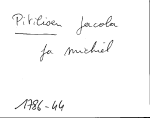 Pitilisen Jacola
fa michiel
1786-44